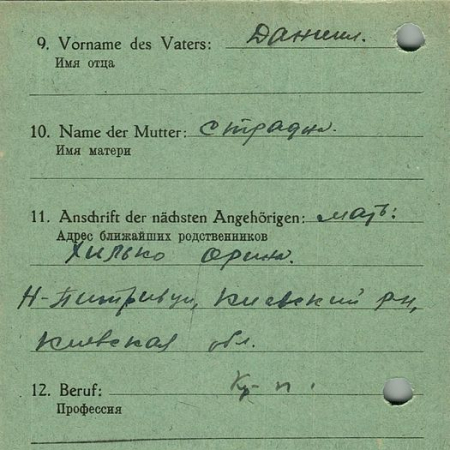 9. Vorname des Vaters: Данил.
Имя отца
10. Name der Mutter: Страдна.
Имя матери
11. Anschrift der nächsten Angehörigen: мать:
Адрес ближайших родственников
Хилько Орина.
Киевский рн,
Киевская обл.
12. Beruf: Кр-н.
Профессия